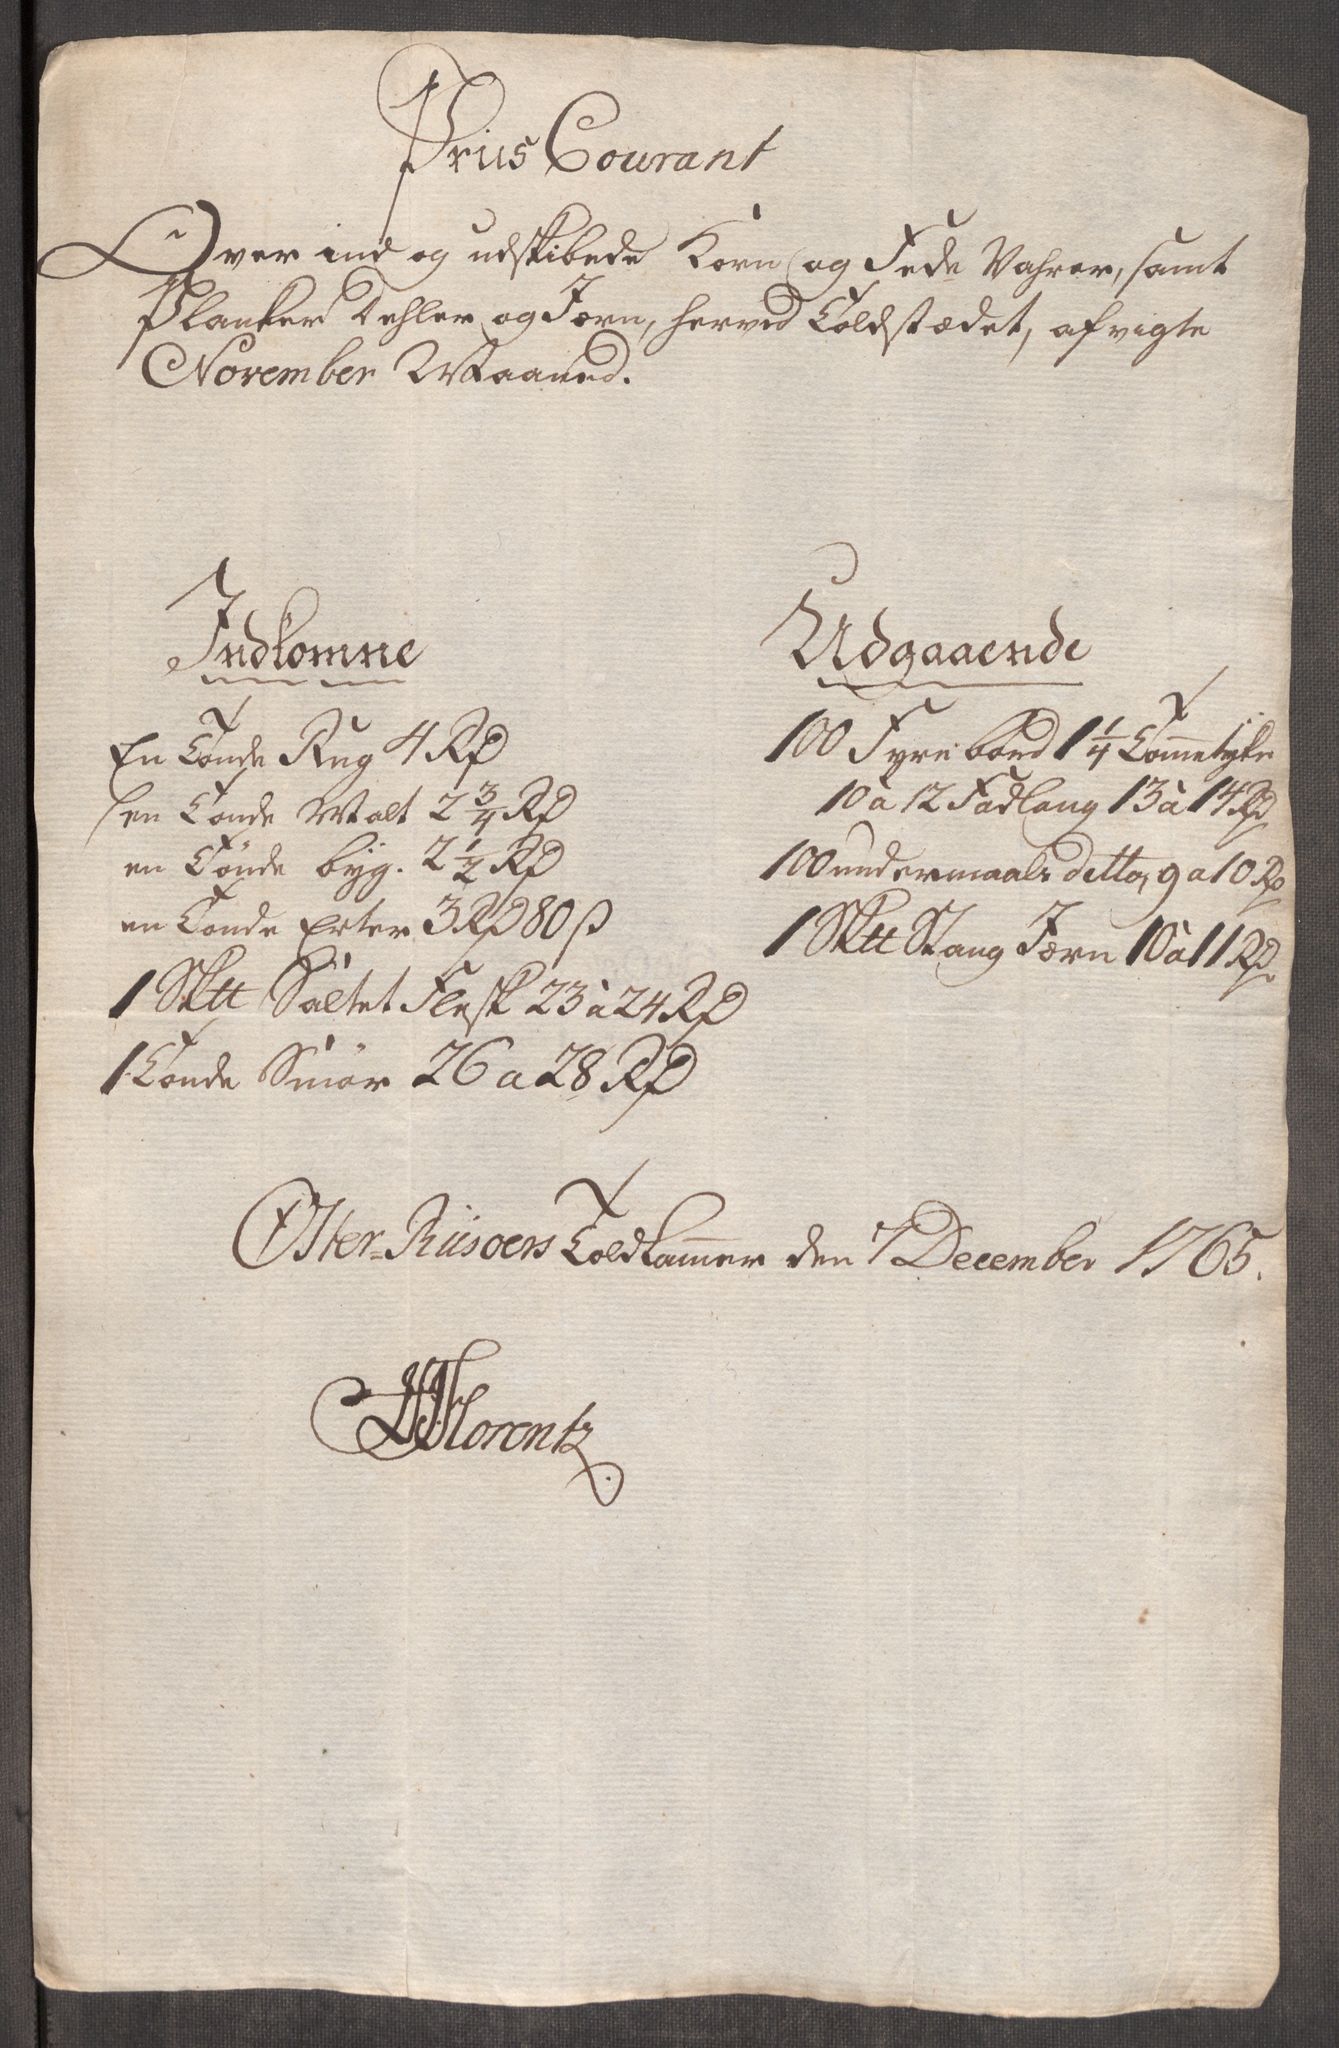 Priis Courant
Over ind og udskibede Korn og Fede Vahrer, samt
Planker Dehler og Jern, herved Toldstædet, afvigte
November Maaned.
Indkomne
En Tønde Rug 4 Rd
en Tønde Malt 2 3/4 Rd
en Tønde byg. 2 1/2 Rd
en Tønde Erter 3 Rd 80 ß
1 Sk℔ Saltet Flesk 23 à 24 Rd
1 Tønde Smør 26 a 28 Rd
Udgaaende
100 Fyre bord 1 1/4 Tom̄etykke
10 a 12 Fod lang 13 à 14 Rd
100 undermaals ditto, 9 a 10 Rd
1 Sk℔ Stang Jern 10 à 11 Rd
Øster-Riisøers Toldkam̄er den 7 December 1765.
Florentz